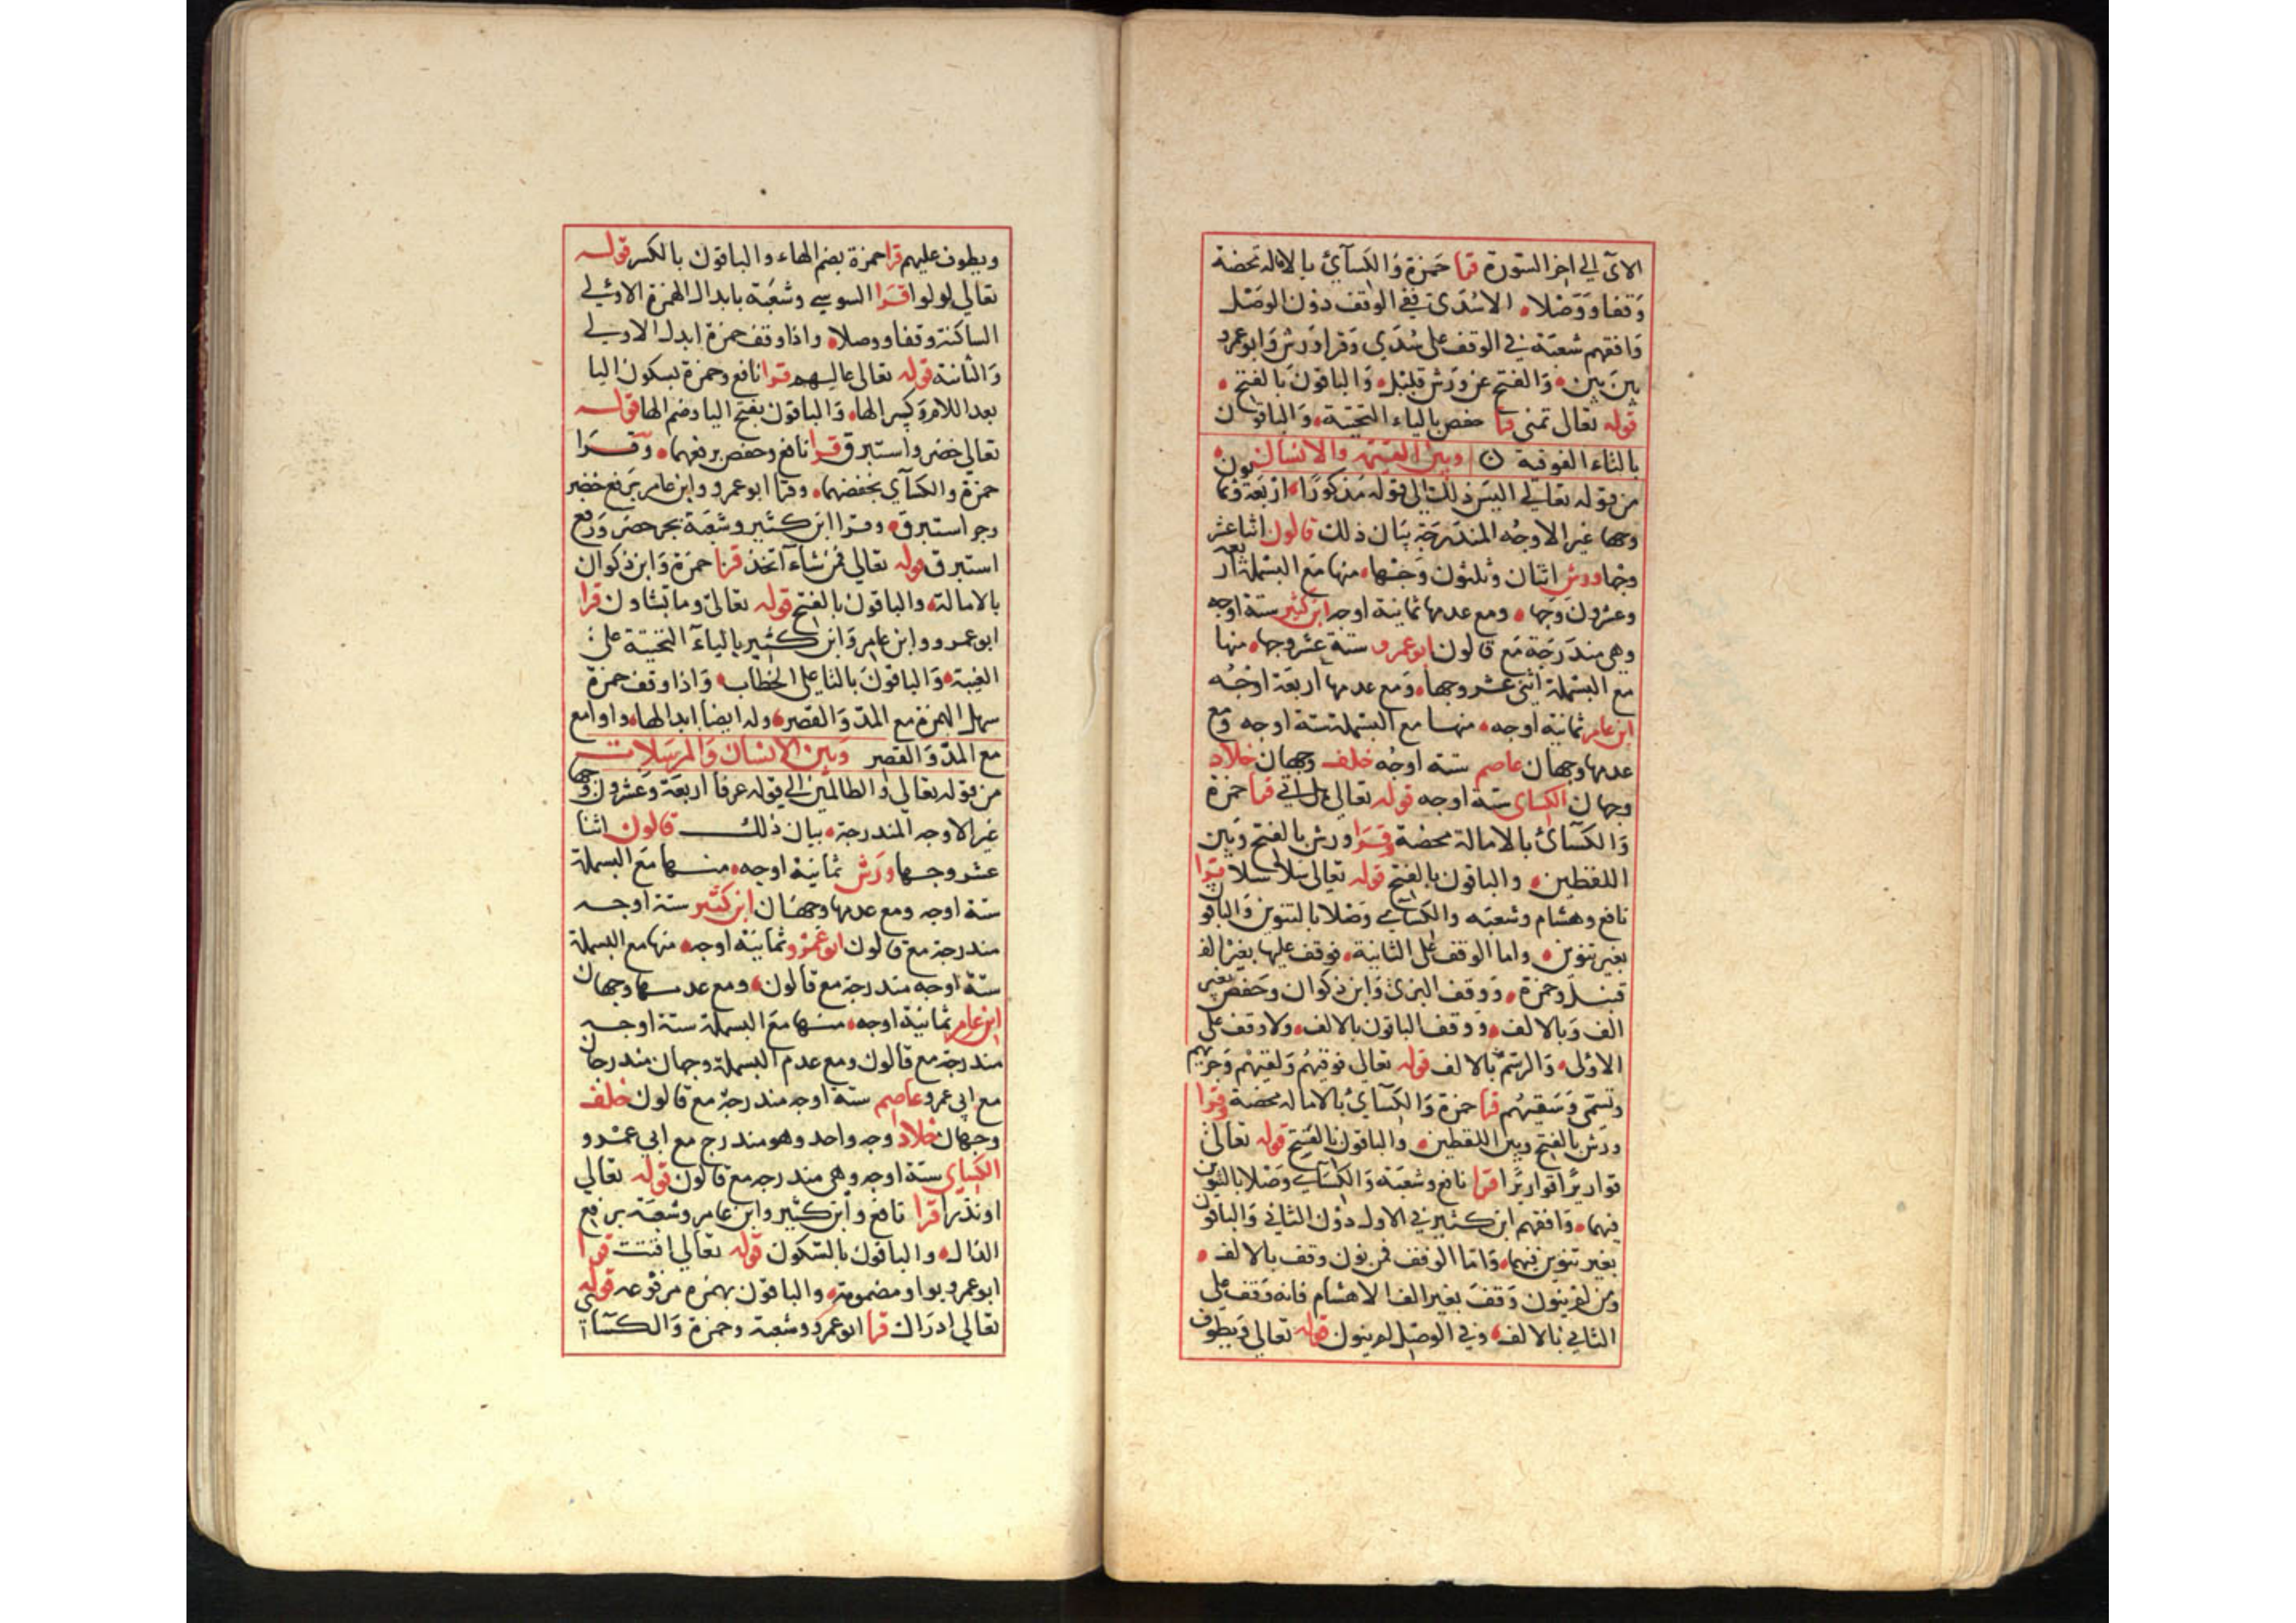 الاى الي اخر السورة قرا حمزة والكسآئ بالامالة محضة
وقفا ووصلا الا سدى ففي الوقف دون الوصل
وافقهم شعبة في الوقف على سدي وقرا ورش وابو عمرو
بين بين والفتح عن ورش قليل والباقون بالفتح
قوله تعالى تمنى قرا حفص بالياء التحتية والباقون
بالتاء الفوقية وبين القيمة والانسان
من قوله تعالي اليس ذلك الى قوله مذكورا اربعة وثمانون
وجها غير الاوجه المندرجة بيان ذلك قالون اثنا عشر
وجها ورش اثنان وثلثون وجها منها مع البسملة اربعة
وعشرون وجها ومع عدمها ثمانية اوجه ابن كثير ستة اوجه
وهي مندرجة مع قالون ابو عمرو ستة عشر وجها منها
مع البسملة اثنى عشر وجها ومع عدمها اربعة اوجه
ابن عامر ثمانية اوجه منها مع البسملة ستة اوجه ومع
عدمها وجهان عاصم ستة اوجه خلف وجهان خلاد
وجهان الكساى ستة اوجه قوله تعالى هل اتى قرا حمزة
والكسآئ بالامالة محضة وقرا ورش بالفتح وبين
اللفظين والباقون بالفتح قوله تعالى سلاسلا قرا
نافع وهشام وشعبه والكساءي وصلا بالتنوين والباقون
بغير تنوين واما الوقف على الثانية فوقف عليها بغير الف
قنبل وحمزة ووقف البزى وابن ذكوان وحفص بغير
الف وبالالف ووقف الباقون بالالف ولا وقف على
الاولى والرسم بالالف قوله تعالى فوقيهم ولقيهم وجزيهم
وتسمى وسقيهم قرا حمزة والكسآئ بالاماله محضة وقرا
ورش بالفتح وبين اللفظين والباقون بالفتح قوله تعالى
قواريرا قواريرا قرا نافع وشعبة والكسآي وصلا بالتنوين
فيهما وافقهم ابن كثير في الاول دون الثاني والباقون
بغير تنوين فيهما واما الوقف فمن نون وقف بالالف
ومن لم ينون وقف بغير الف الا هشام فانه وقف على
الثاني بالالف وفي الوصل لم ينون قوله تعالى ويطوف
ويطوف عليهم قرا حمزة بضم الهاء والباقون بالكسر قوله
تعالى لولوا قرا السوسي وشعبة بابدال الهمزة الاولي
الساكنة وقفا ووصلا واذا وقف حمزة ابدل الاولي
والثانية قوله تعالى عاليهم قرا نافع وحمزة بسكون اليا
بعد اللام وكسر الها والباقون بفتح اليا وضم الها قوله
تعالى خضر واستبرق قرا نافع وحفص برفعهما وقرا
حمزة والكسآي بخفضهما وقرا ابو عمرو وابن عامر برفع خضر
وجر استبرق وقرا ابن كثير وشعبة بجر خضر ورفع
استبرق قوله تعالي فمن شآء اتخذ قرا حمزة وابن ذكوان
بالامالة والباقون بالفتح قوله تعالى وما تشاون قرا
ابو عمرو وابن عامر وابن كثير بالياء التحتية على
الغيبة والباقون بالتا على الخطاب واذا وقف حمزة
سهل الهمزة مع المد والقصر وله ايضا ابدالها واوا مع
مع المد والقصر وبين الانسان والمرسلات
من قوله تعالى والظالمين الي قوله عرفا اربعة وعشرون وجها
غير الاوجه المندرجة بيان ذلك قالون اثنا
عشر وجها ورش ثمانية اوجه منها مع البسملة
ستة اوجه ومع عدمها وجهان ابن كثير ستة اوجه
مندرجة مع قالون ابو عمرو ثمانية اوجه منها مع البسملة
ستة اوجه مندرجة مع قالون ومع عدمها وجهان
ابن عامر ثمانية اوجه منها مع البسملة ستة اوجه
مندرجة مع قالون ومع عدم البسملة وجهان مندرجان
مع ابي عمرو عاصم ستة اوجه مندرجة مع قالون خلف
وجهان خلاد وجه واحد وهو مندرج مع ابي عمرو
الكساي ستة اوجه وهي مندرجه مع قالون قوله تعالي
او نذرا قرا نافع وابن كثير وابن عامر وشعبة برفع
الذال والباقون بالسكون قوله تعالي اقتت قرا
ابو عمرو بواو مضمومة والباقون بهمزه مرفوعه قوله
تعالي ادراك قرا ابو عمرو وشعبة وحمزة والكسآئي